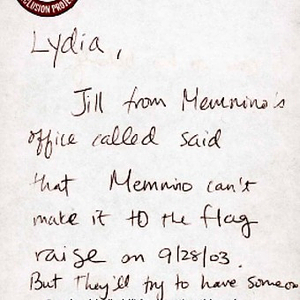 CLUSION PROJE
Lydia,
Jill from Memnino's
office called said
that Memnino can't
make it to the flag
raise on 9/28/03.
But They'll try to have someon